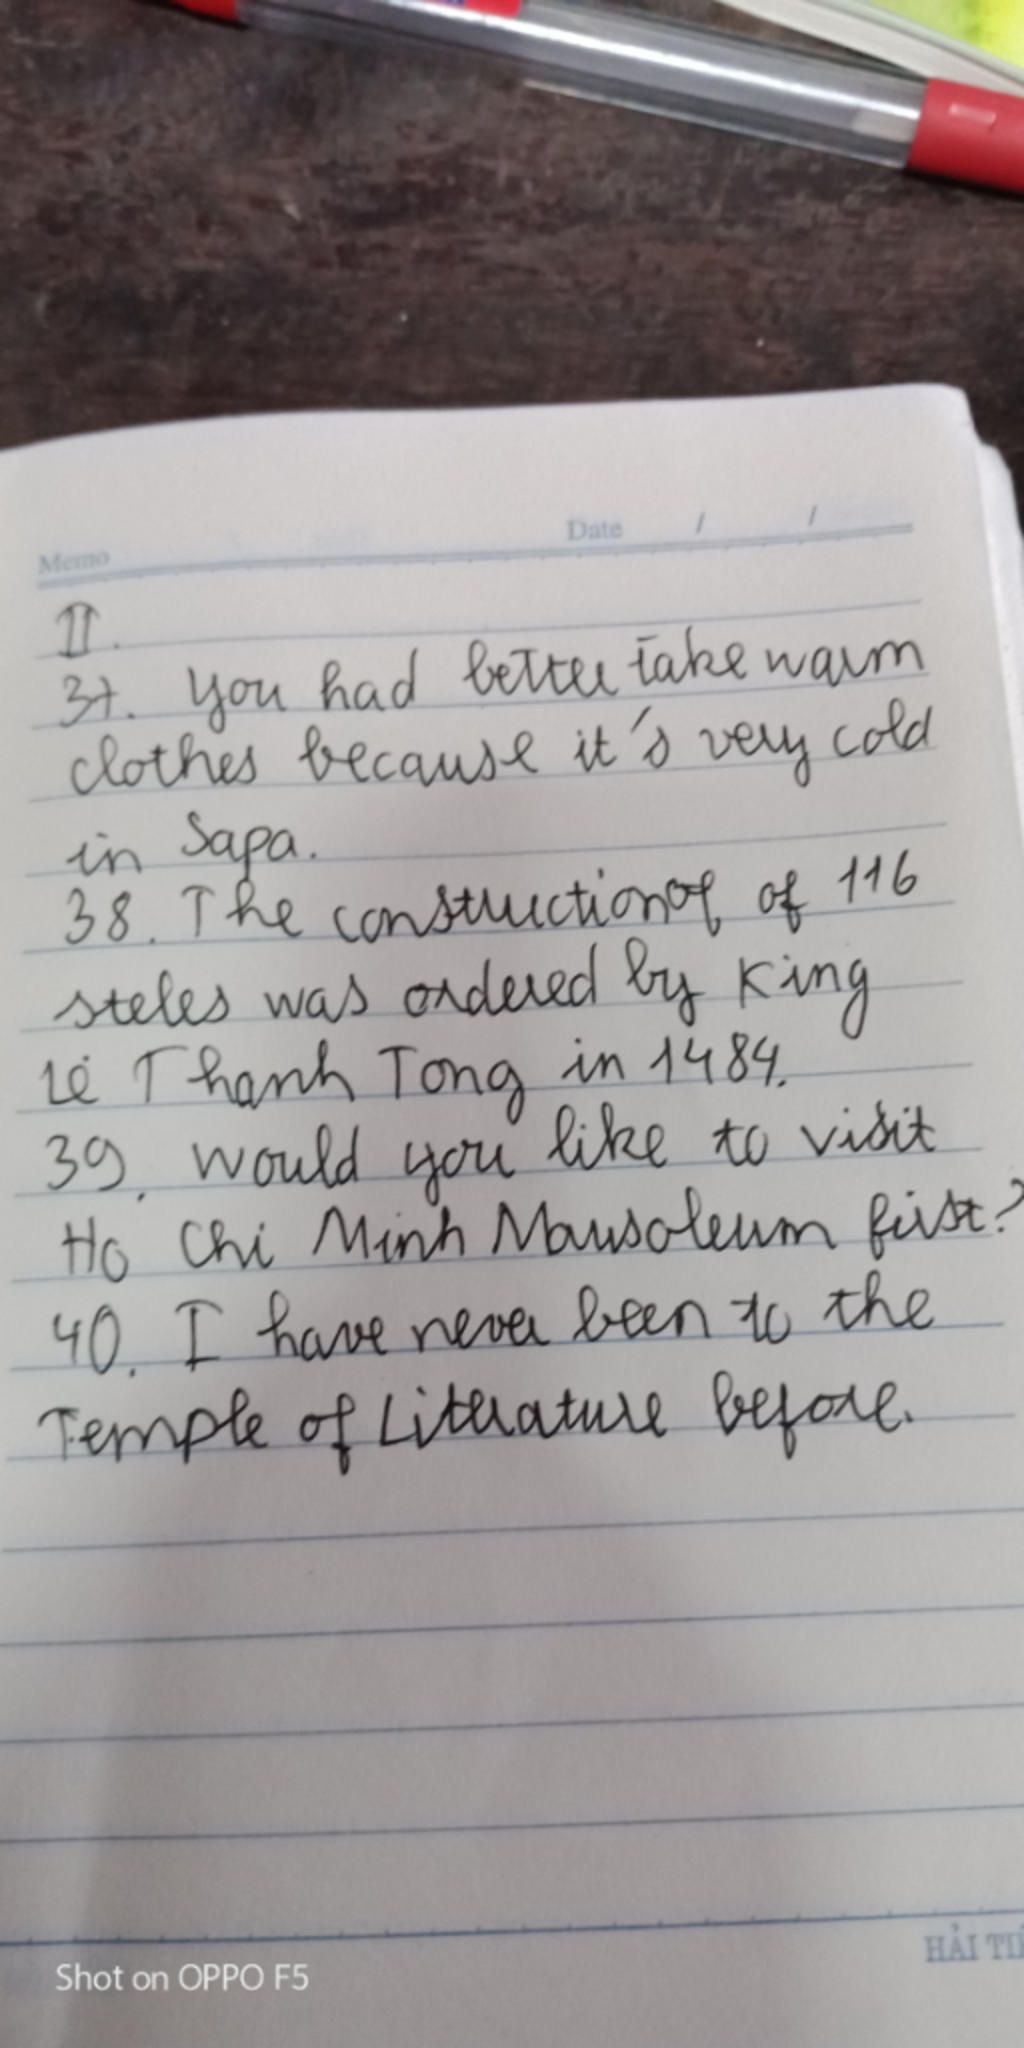 Memo Date / /
II.
37. You had better take warm
clothes because it's very cold
in Sapa.
38. The constructionof of 116
steles was ordered by King
Lê Thanh Tong in 1484.
39. Would you like to visit
Ho Chi Minh Mausoleum first?
40. I have never been to the
Temple of Literature before.
HẢI TI
Shot on OPPO F5